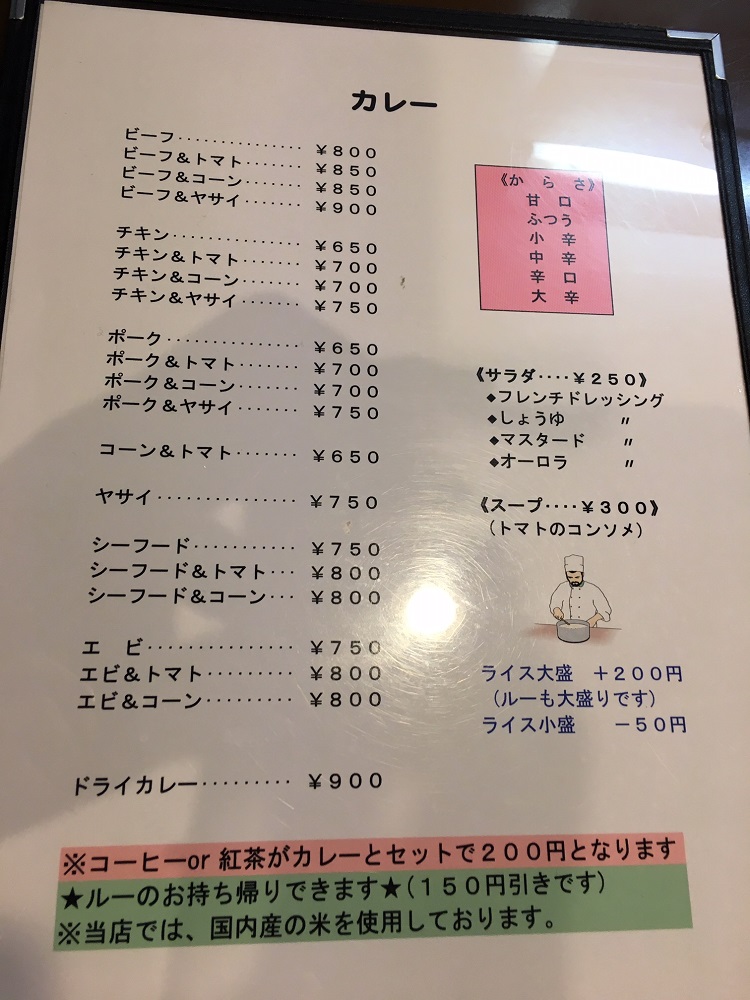 カレー
ビーフ················¥800
ビーフ&トマト·······¥850
ビーフ&コーン·······¥850
ビーフ&ヤサイ·······¥900
チキン················¥650
チキン&トマト·······¥700
チキン&コーン·······¥700
チキン&ヤサイ·······¥750
ポーク················¥650
ポーク&トマト·······¥700
ポーク&コーン·······¥700
ポーク&ヤサイ·······¥750
コーン&トマト·······¥650
ヤサイ················¥750
シーフード···········¥750
シーフード&トマト···¥800
シーフード&コーン···¥800
エ ビ················¥750
エビ&トマト·········¥800
エビ&コーン·········¥800
ドライカレー·········¥900
《か ら さ》
甘 口
ふつう
小 辛
中 辛
辛 口
大 辛
《サラダ····¥250》
◆フレンチドレッシング
◆しょうゆ 〃
◆マスタード 〃
◆オーロラ 〃
《スープ····¥300》
(トマトのコンソメ)
ライス大盛 +200円
(ルーも大盛りです)
ライス小盛 -50円
※コーヒーor 紅茶がカレーとセットで200円となります
★ルーのお持ち帰りできます★(150円引きです)
※当店では、国内産の米を使用しております。